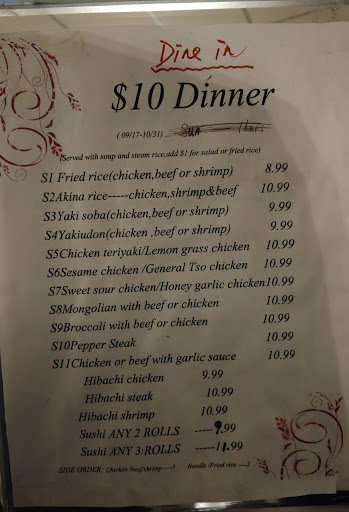 Dine in
$10 Dinner
( 09/17-10/31)
(Served with soup and steam rice,add $1 for salad or fried rice)
S1 Fried rice(chicken,beef or shrimp) 8.99
S2Akina rice-----chicken,shrimp&beef 10.99
S3Yaki soba(chicken,beef or shrimp) 9.99
S4Yakiudon(chicken ,beef or shrimp) 9.99
S5Chicken teriyaki/Lemon grass chicken 10.99
S6Sesame chicken /General Tso chicken 10.99
S7Sweet sour chicken/Honey garlic chicken10.99
S8Mongolian with beef or chicken 10.99
S9Broccoli with beef or chicken 10.99
S10Pepper Steak 10.99
S11Chicken or beef with garlic sauce 10.99
Hibachi chicken 9.99
Hibachi steak 10.99
Hibachi shrimp 10.99
Sushi ANY 2 ROLLS -----9.99
Sushi ANY 3 ROLLS -----11.99
SIDE ORDER: Chicken /beef/shrimp ---3 Noodle /Fried rice ---2